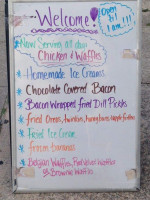 Welcome!
Open
til
1 am!!!
Now Serving all day
Chicken & Waffles
Homemade Ice Creams
Chocolate Covered Bacon
Bacon Wrapped fried Dill Pickles
fried Oreos, twinkies,
Fried Ice Cream
frozen bananas
Belgian Waffles, Red Velvet Waffles
Brownie Waffles